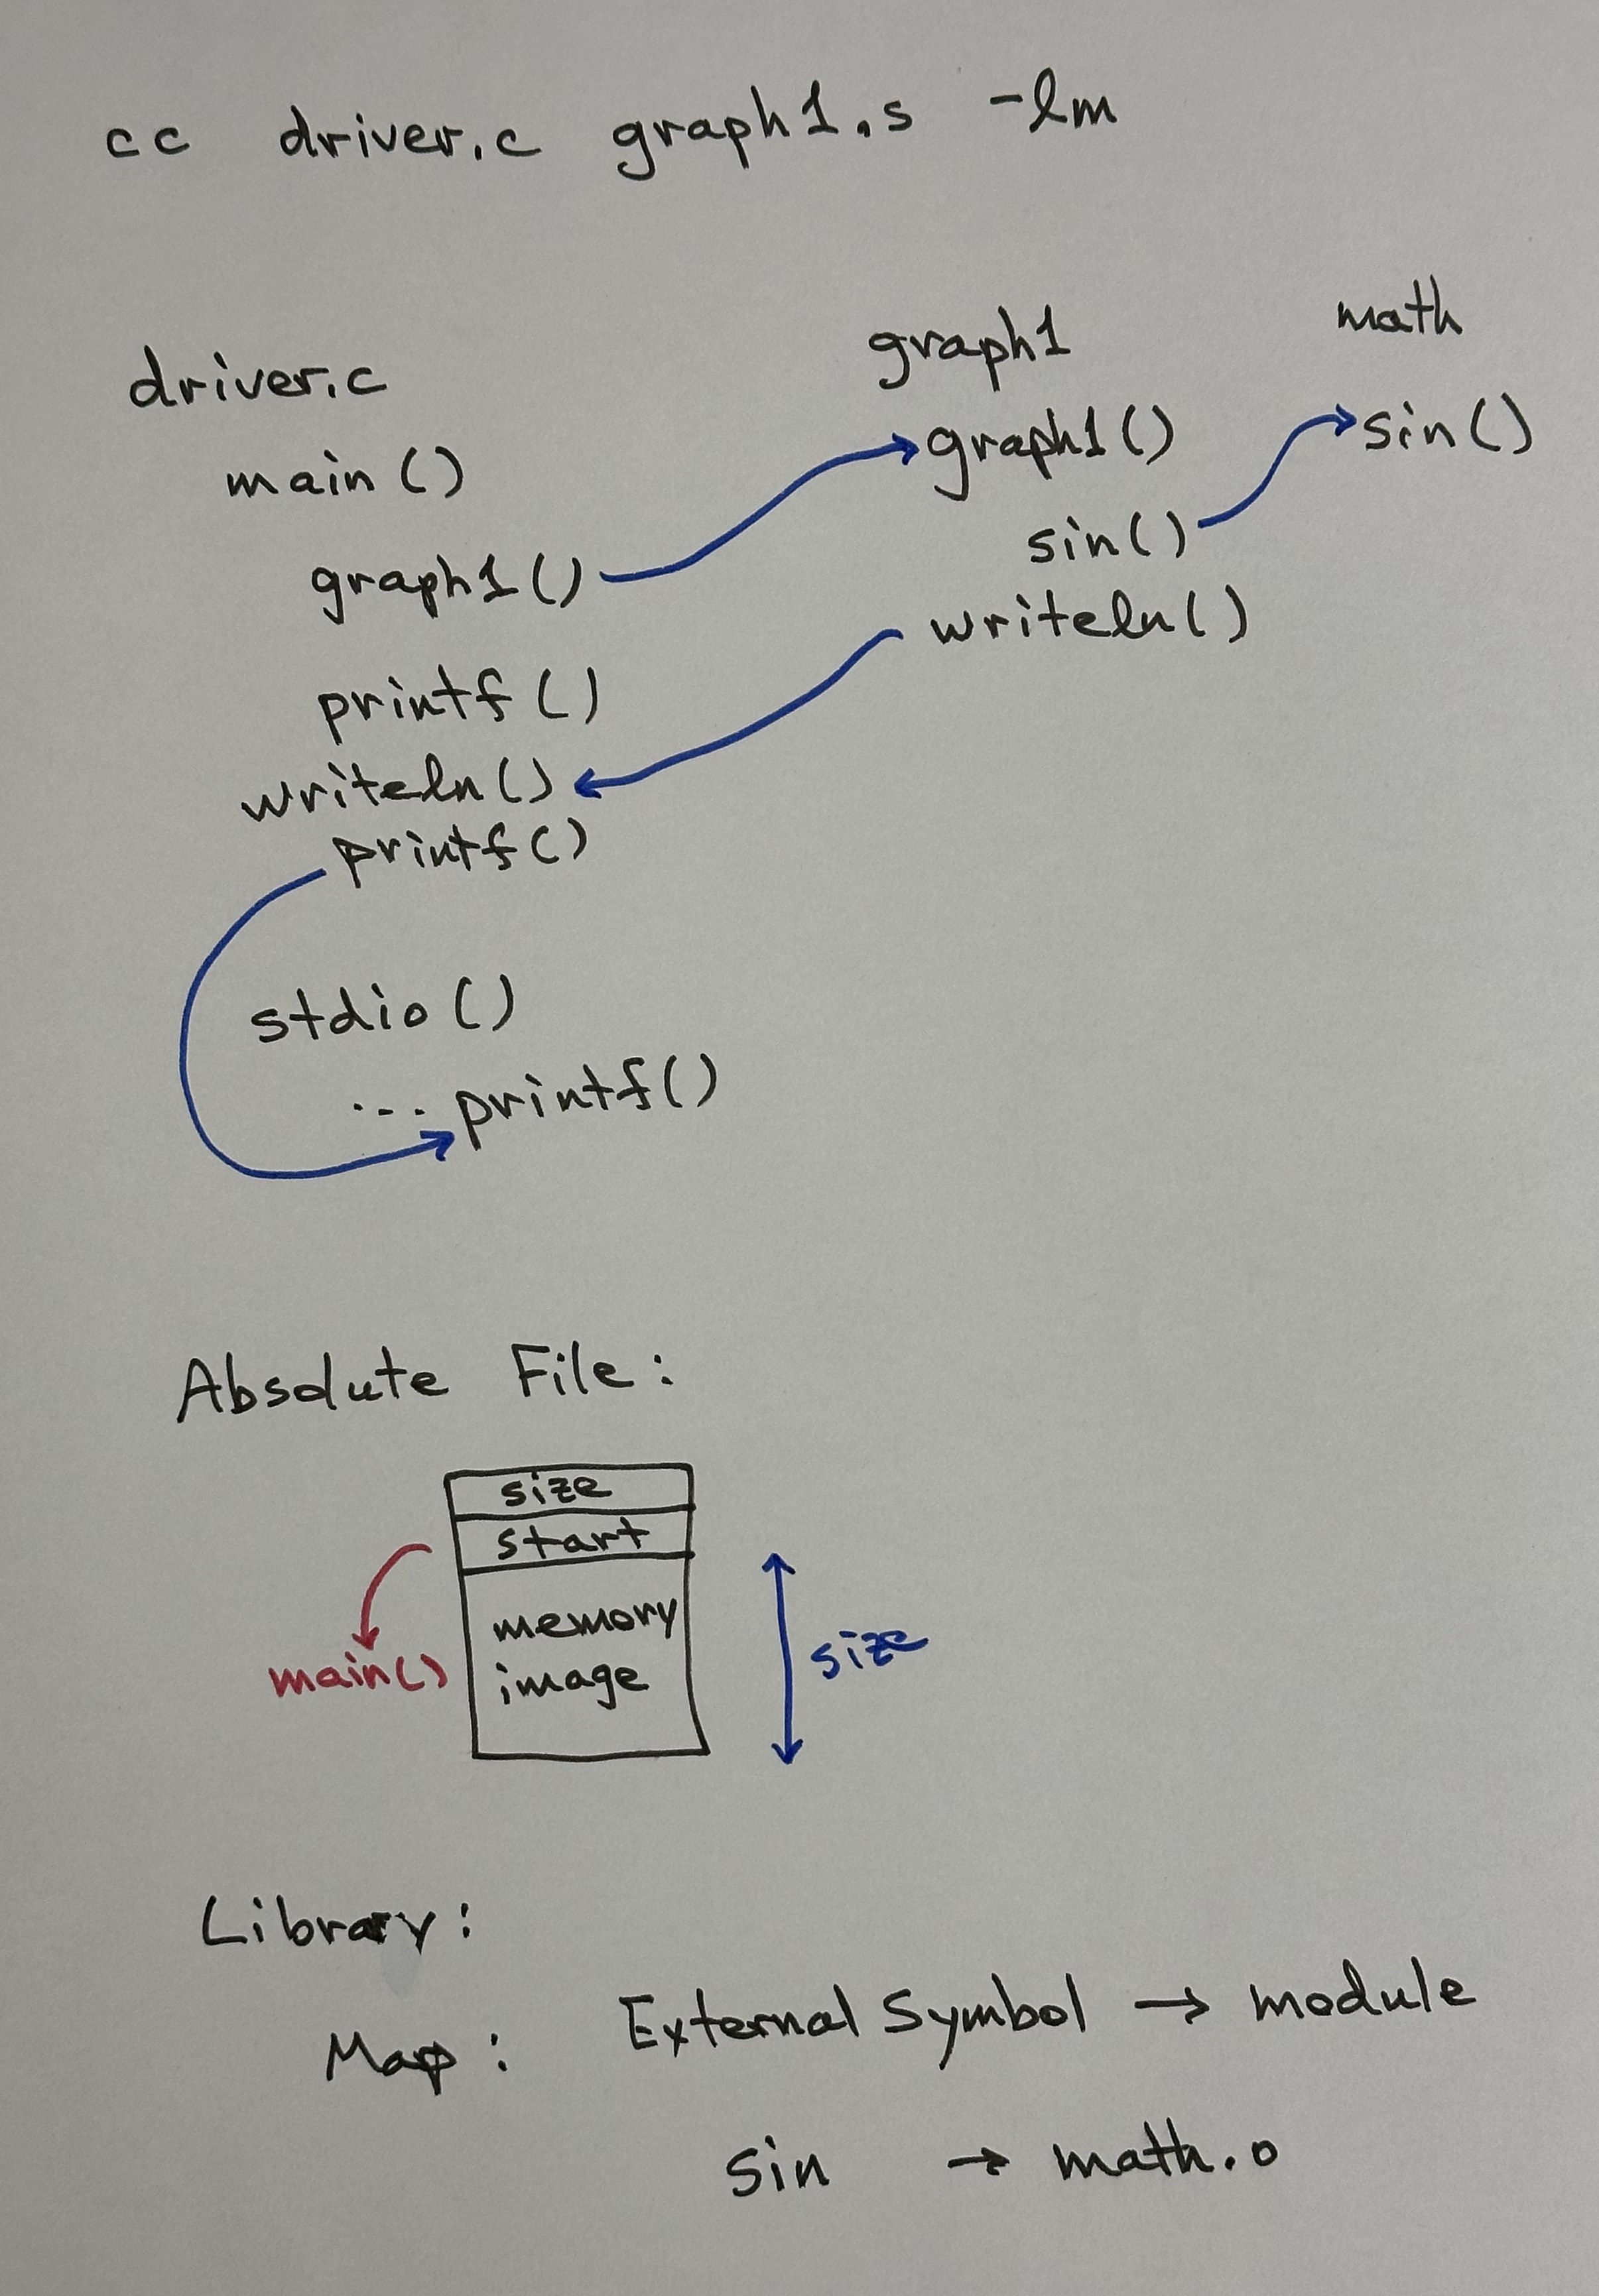 cc driver.c graph1.s -lm
driver.c
main()
graph1()
printf()
writeln()
printf()
stdio()
... printf()
graph1
graph1()
sin()
writeln()
math
sin()
Absolute File:
size
start
memory
image
main()
size
Library:
Map: External Symbol → module
sin → math.o